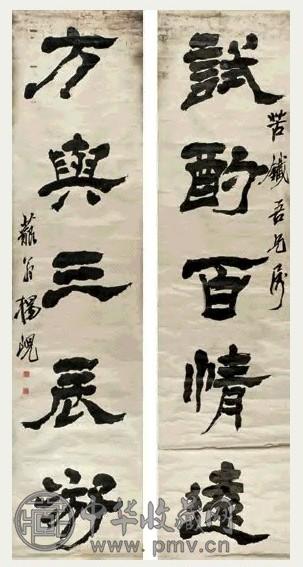 試酌百情遠
苦鐵吾兄屬
方與三辰游
藐翁楊峴
中华收藏网
www.pmv.cn